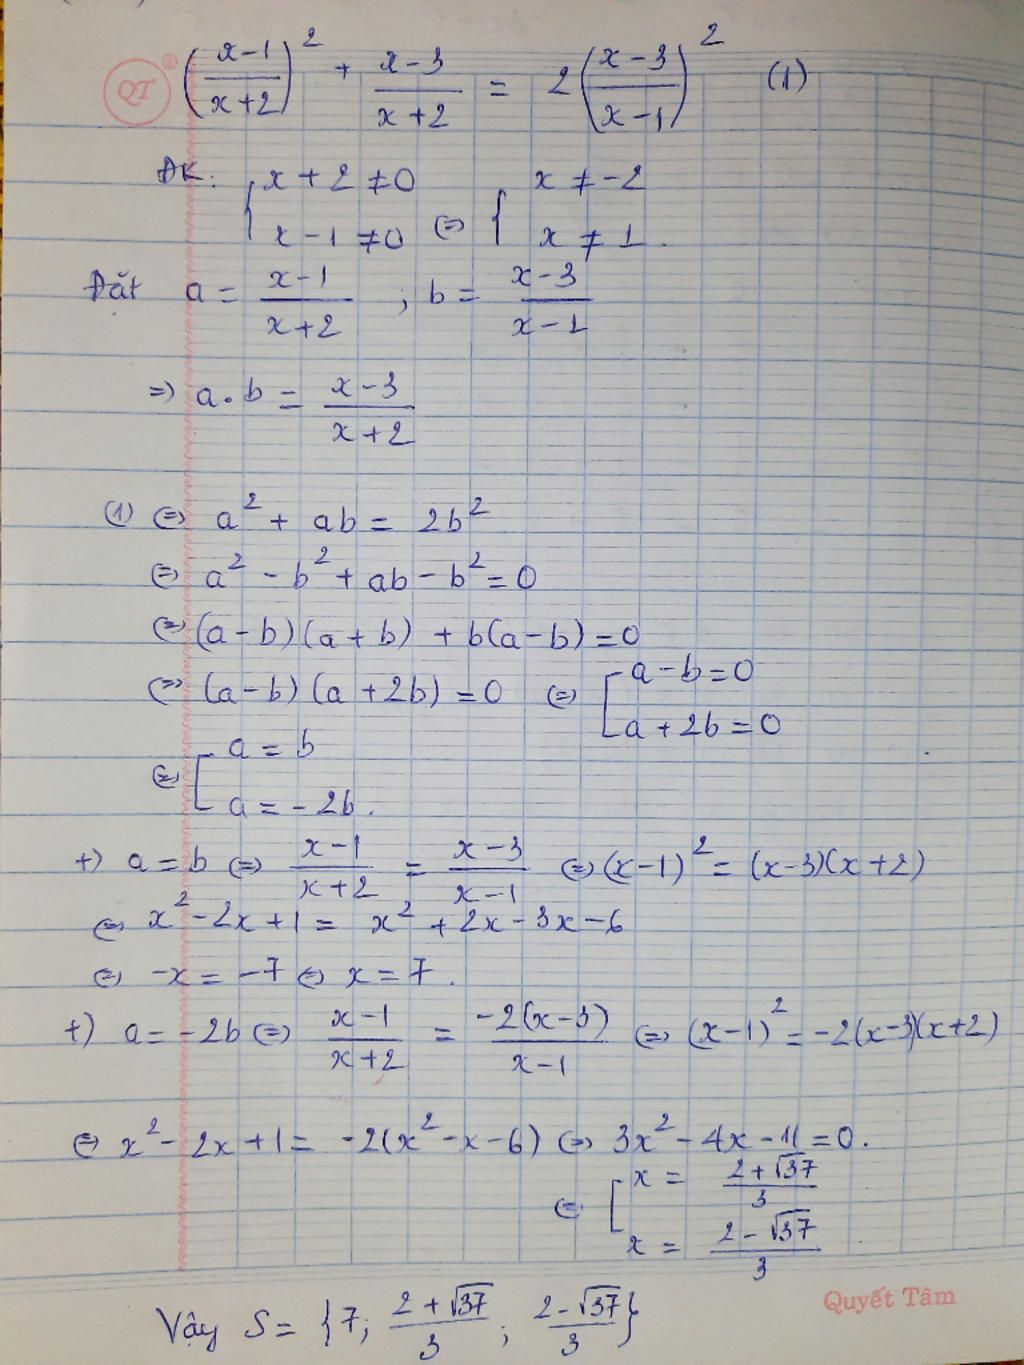 QT ((x-1)/(x+2))² + (x-3)/(x+2) = 2((x-3)/(x-1))² (1)
ĐK: { x + 2 ≠ 0 ; x - 1 ≠ 0 ⇔ { x ≠ -2 ; x ≠ 1.
Đặt a = (x-1)/(x+2) ; b = (x-3)/(x-1)
⇒ a.b = (x-3)/(x+2)
(1) ⇔ a² + ab = 2b²
⇔ a² - b² + ab - b² = 0
⇔ (a-b)(a+b) + b(a-b) = 0
⇔ (a-b)(a+2b) = 0 ⇔ [ a-b=0 ; a+2b=0
⇔ [ a = b ; a = -2b.
+) a = b ⇔ (x-1)/(x+2) = (x-3)/(x-1) ⇔ (x-1)² = (x-3)(x+2)
⇔ x² - 2x + 1 = x² + 2x - 3x - 6
⇔ -x = -7 ⇔ x = 7.
+) a = -2b ⇔ (x-1)/(x+2) = -2(x-3)/(x-1) ⇔ (x-1)² = -2(x-3)(x+2)
⇔ x² - 2x + 1 = -2(x² - x - 6) ⇔ 3x² - 4x - 11 = 0.
⇔ [ x = (2+√37)/3 ; x = (2-√37)/3
Vậy S = {7; (2+√37)/3 ; (2-√37)/3}
Quyết Tâm